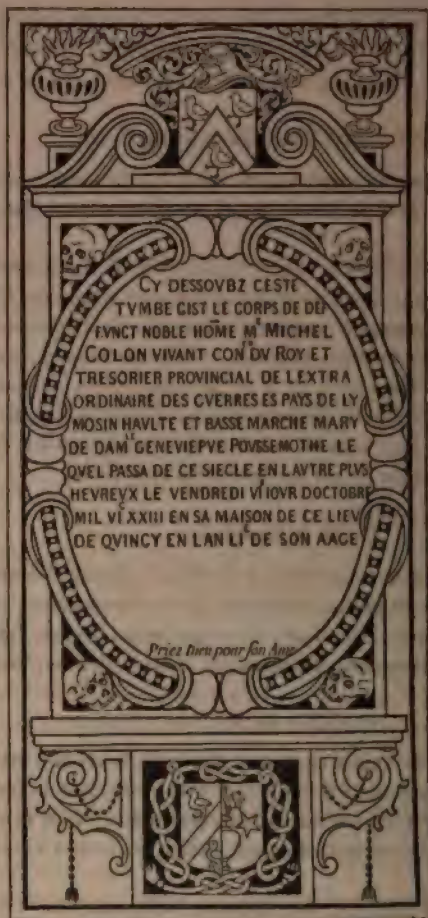 CY DESSOVBZ CESTE
TVMBE GIST LE CORPS DE DEF
FVNCT NOBLE HOM̄E Mᴱ MICHEL
COLON VIVANT CONᴱᴿ DV ROY ET
TRESORIER PROVINCIAL DE LEXTRA
ORDINAIRE DES GVERRES ES PAYS DE LY
MOSIN HAVLTE ET BASSE MARCHE MARY
DE DAMᴸᴱ GENEVIEPVE POVSSEMOTHE LE
QVEL PASSA DE CE SIECLE EN LAVTRE PLVS
HEVREVX LE VENDREDI VIᴱ IOVR DOCTOBRE
MIL VIᶜ XXIII EN SA MAISON DE CE LIEV
DE QVINCY EN LAN LIᴱ DE SON AAGE
Priez Dieu pour son Ame